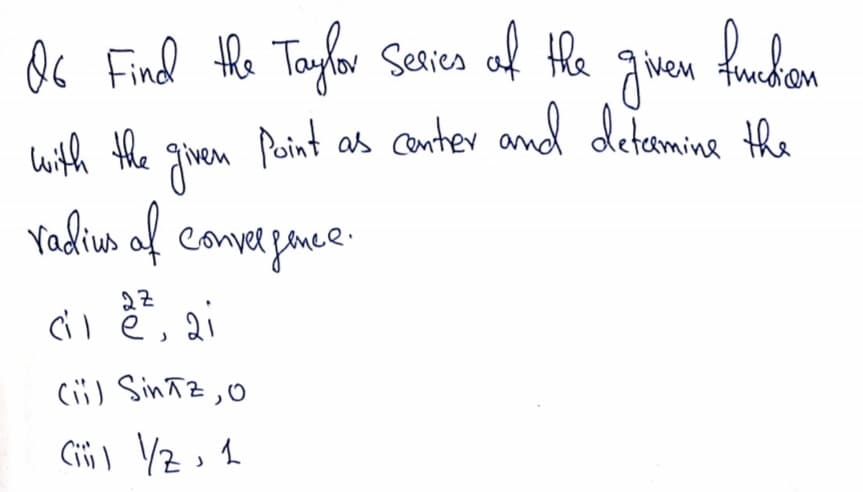 Q6 Find the Taylor Series of the given function
with the given Point as center and determine the
radius of convergence.
(i) e^{2z}, 2i
(ii) Sin πz, 0
(iii) 1/z, 1